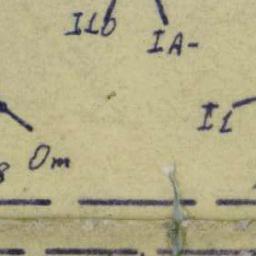 ILb
IA-
I1
8 Om